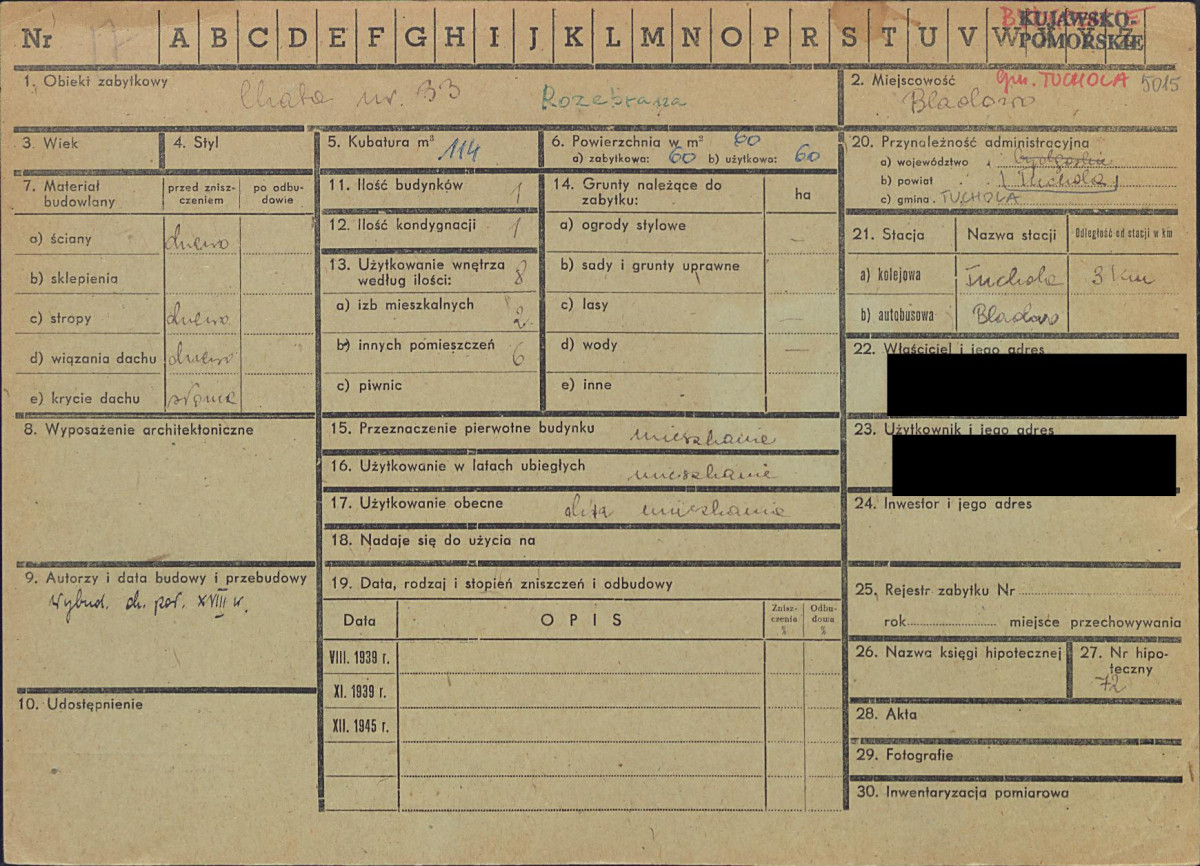 Nr 17 A B C D E F G H I J K L M N O P R S T U V W
KUJAWSKO-
POMORSKIE
1. Obiekt zabytkowy
Chata nr. 33 Rozebrana
2. Miejscowość gm. TUCHOLA 5015
Bladowo
3. Wiek
4. Styl
5. Kubatura m³ 114
6. Powierzchnia w m² 60
a) zabytkowa: 60 b) użytkowa: 60
20. Przynależność administracyjna
a) województwo bydgoskie
b) powiat Tuchola
c) gmina. TUCHOLA
7. Materiał budowlany
przed znisz-
czeniem
po odbu-
dowie
a) ściany drewno
b) sklepienia
c) stropy drewno
d) wiązania dachu drewno
e) krycie dachu słoma
11. Ilość budynków 1
12. Ilość kondygnacji 1
13. Użytkowanie wnętrza
według ilości: 8
a) izb mieszkalnych 2
b) innych pomieszczeń 6
c) piwnic
14. Grunty należące do
zabytku:
ha
a) ogrody stylowe –
b) sady i grunty uprawne
c) lasy –
d) wody –
e) inne
21. Stacja Nazwa stacji Odległość od stacji w km
a) kolejowa Tuchola 3 km
b) autobusowa Bladowo
22. Właściciel i jego adres
23. Użytkownik i jego adres
24. Inwestor i jego adres
8. Wyposażenie architektoniczne
15. Przeznaczenie pierwotne budynku mieszkanie
16. Użytkowanie w latach ubiegłych mieszkanie
17. Użytkowanie obecne mieszkanie
18. Nadaje się do użycia na
9. Autorzy i data budowy i przebudowy
wybud. ch. poł. XVIII w.
10. Udostępnienie
19. Data, rodzaj i stopień zniszczeń i odbudowy
Data OPIS
Znisz-
czenia
%
Odbu-
dowa
%
VIII. 1939 r.
XI. 1939 r.
XII. 1945 r.
25. Rejestr zabytku Nr
rok miejsce przechowywania
26. Nazwa księgi hipotecznej
27. Nr hipo-
teczny
72
28. Akta
29. Fotografie
30. Inwentaryzacja pomiarowa